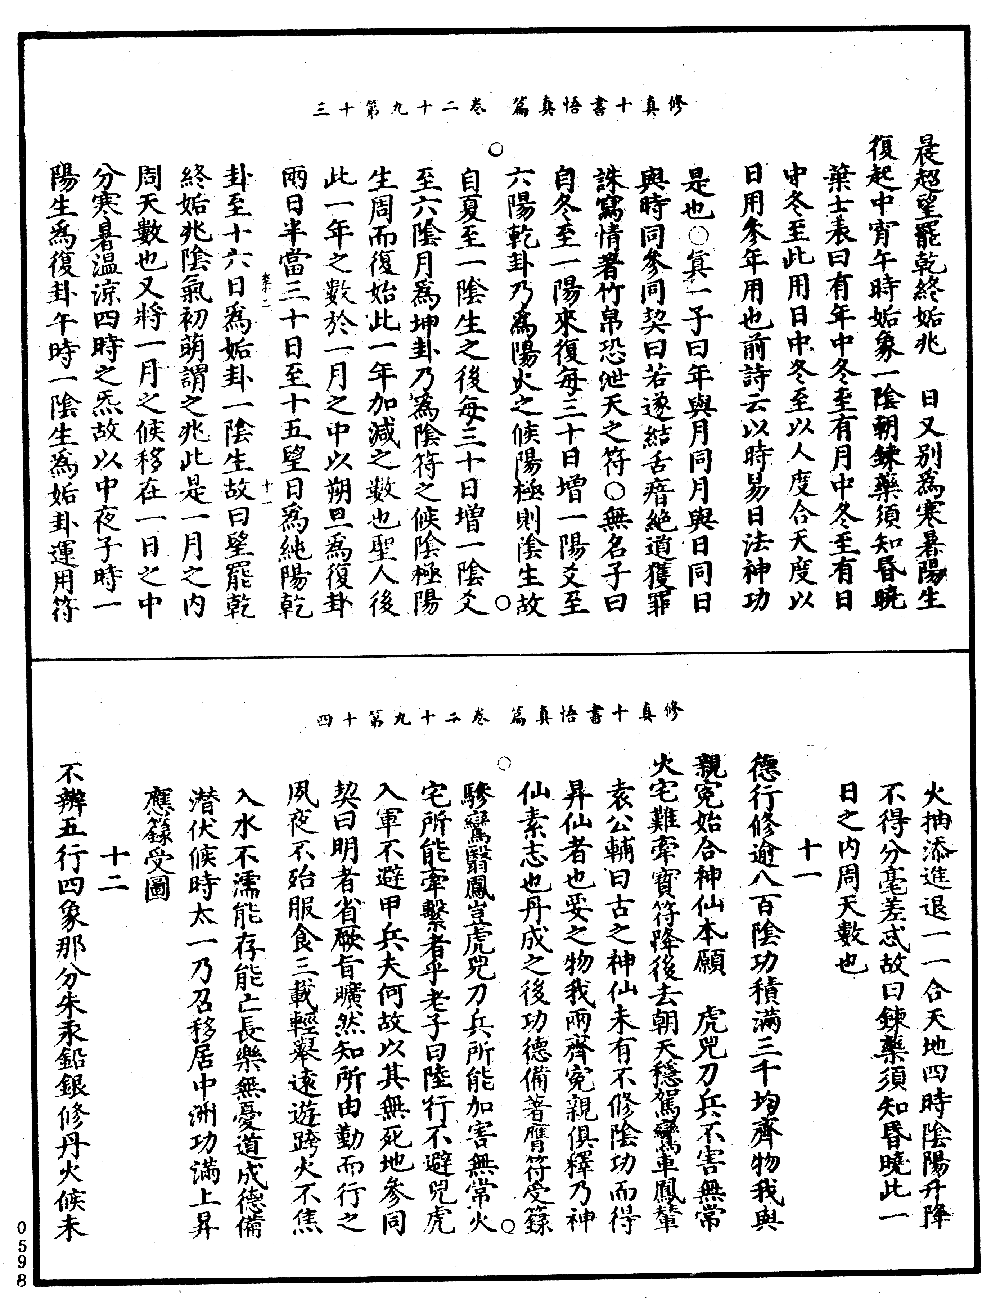 修真十書悟真篇　卷二十九第十三
晨趍望罷乾終姤兆　日又別為寒暑陽生
復起中宵午時姤象一陰朝鍊藥須知昏曉
葉士表曰有年中冬至有月中冬至有日
中冬至此用日中冬至以人度合天度以
日用參年用也前詩云以時易日法神功
是也○真一子曰年與月同月與日同日
與時同參同契曰若遂結舌瘖絕道獲罪
誅寫情著竹帛恐泄天之符○無名子曰
自冬至一陽來復每三十日增一陽爻至
六陽乾卦乃為陽火之候陽極則陰生故
自夏至一陰生之後每三十日增一陰爻
至六陰月為坤卦乃為陰符之候陰極陽
生周而復始此一年加減之數也聖人後
此一年之數於一月之中以朔旦為復卦
兩日半當三十日至十五望日為純陽乾
卦至十六日為姤卦一陰生故曰望罷乾
終姤兆陰氣初萌謂之兆此是一月之內
周天數也又將一月之候移在一日之中
分寒暑溫涼四時之炁故以中夜子時一
陽生為復卦午時一陰生為姤卦運用符
修真十書悟真篇　卷二十九第十四
火抽添進退一一合天地四時陰陽升降
不得分毫差忒故曰鍊藥須知昏曉此一
日之內周天數也
十一
德行修逾八百陰功積滿三千均齊物我與
親冤始合神仙本願　虎兕刀兵不害無常
火宅難牽寶符降後去朝天穩駕鸞車鳳輦
袁公輔曰古之神仙未有不修陰功而得
昇仙者也要之物我兩齊冤親俱釋乃神
仙素志也丹成之後功德備著膺符受籙
驂鸞翳鳳豈虎兕刀兵所能加害無常火
宅所能牽繫者乎老子曰陸行不避兕虎
入軍不避甲兵夫何故以其無死地參同
契曰明者省厥旨曠然知所由勤而行之
夙夜不殆服食三載輕舉遠遊跨火不焦
入水不濡能存能亡長樂無憂道成德備
潛伏候時太一乃召移居中洲功滿上昇
應籙受圖
十二
不辨五行四象那分朱汞鉛銀修丹火候未
0598